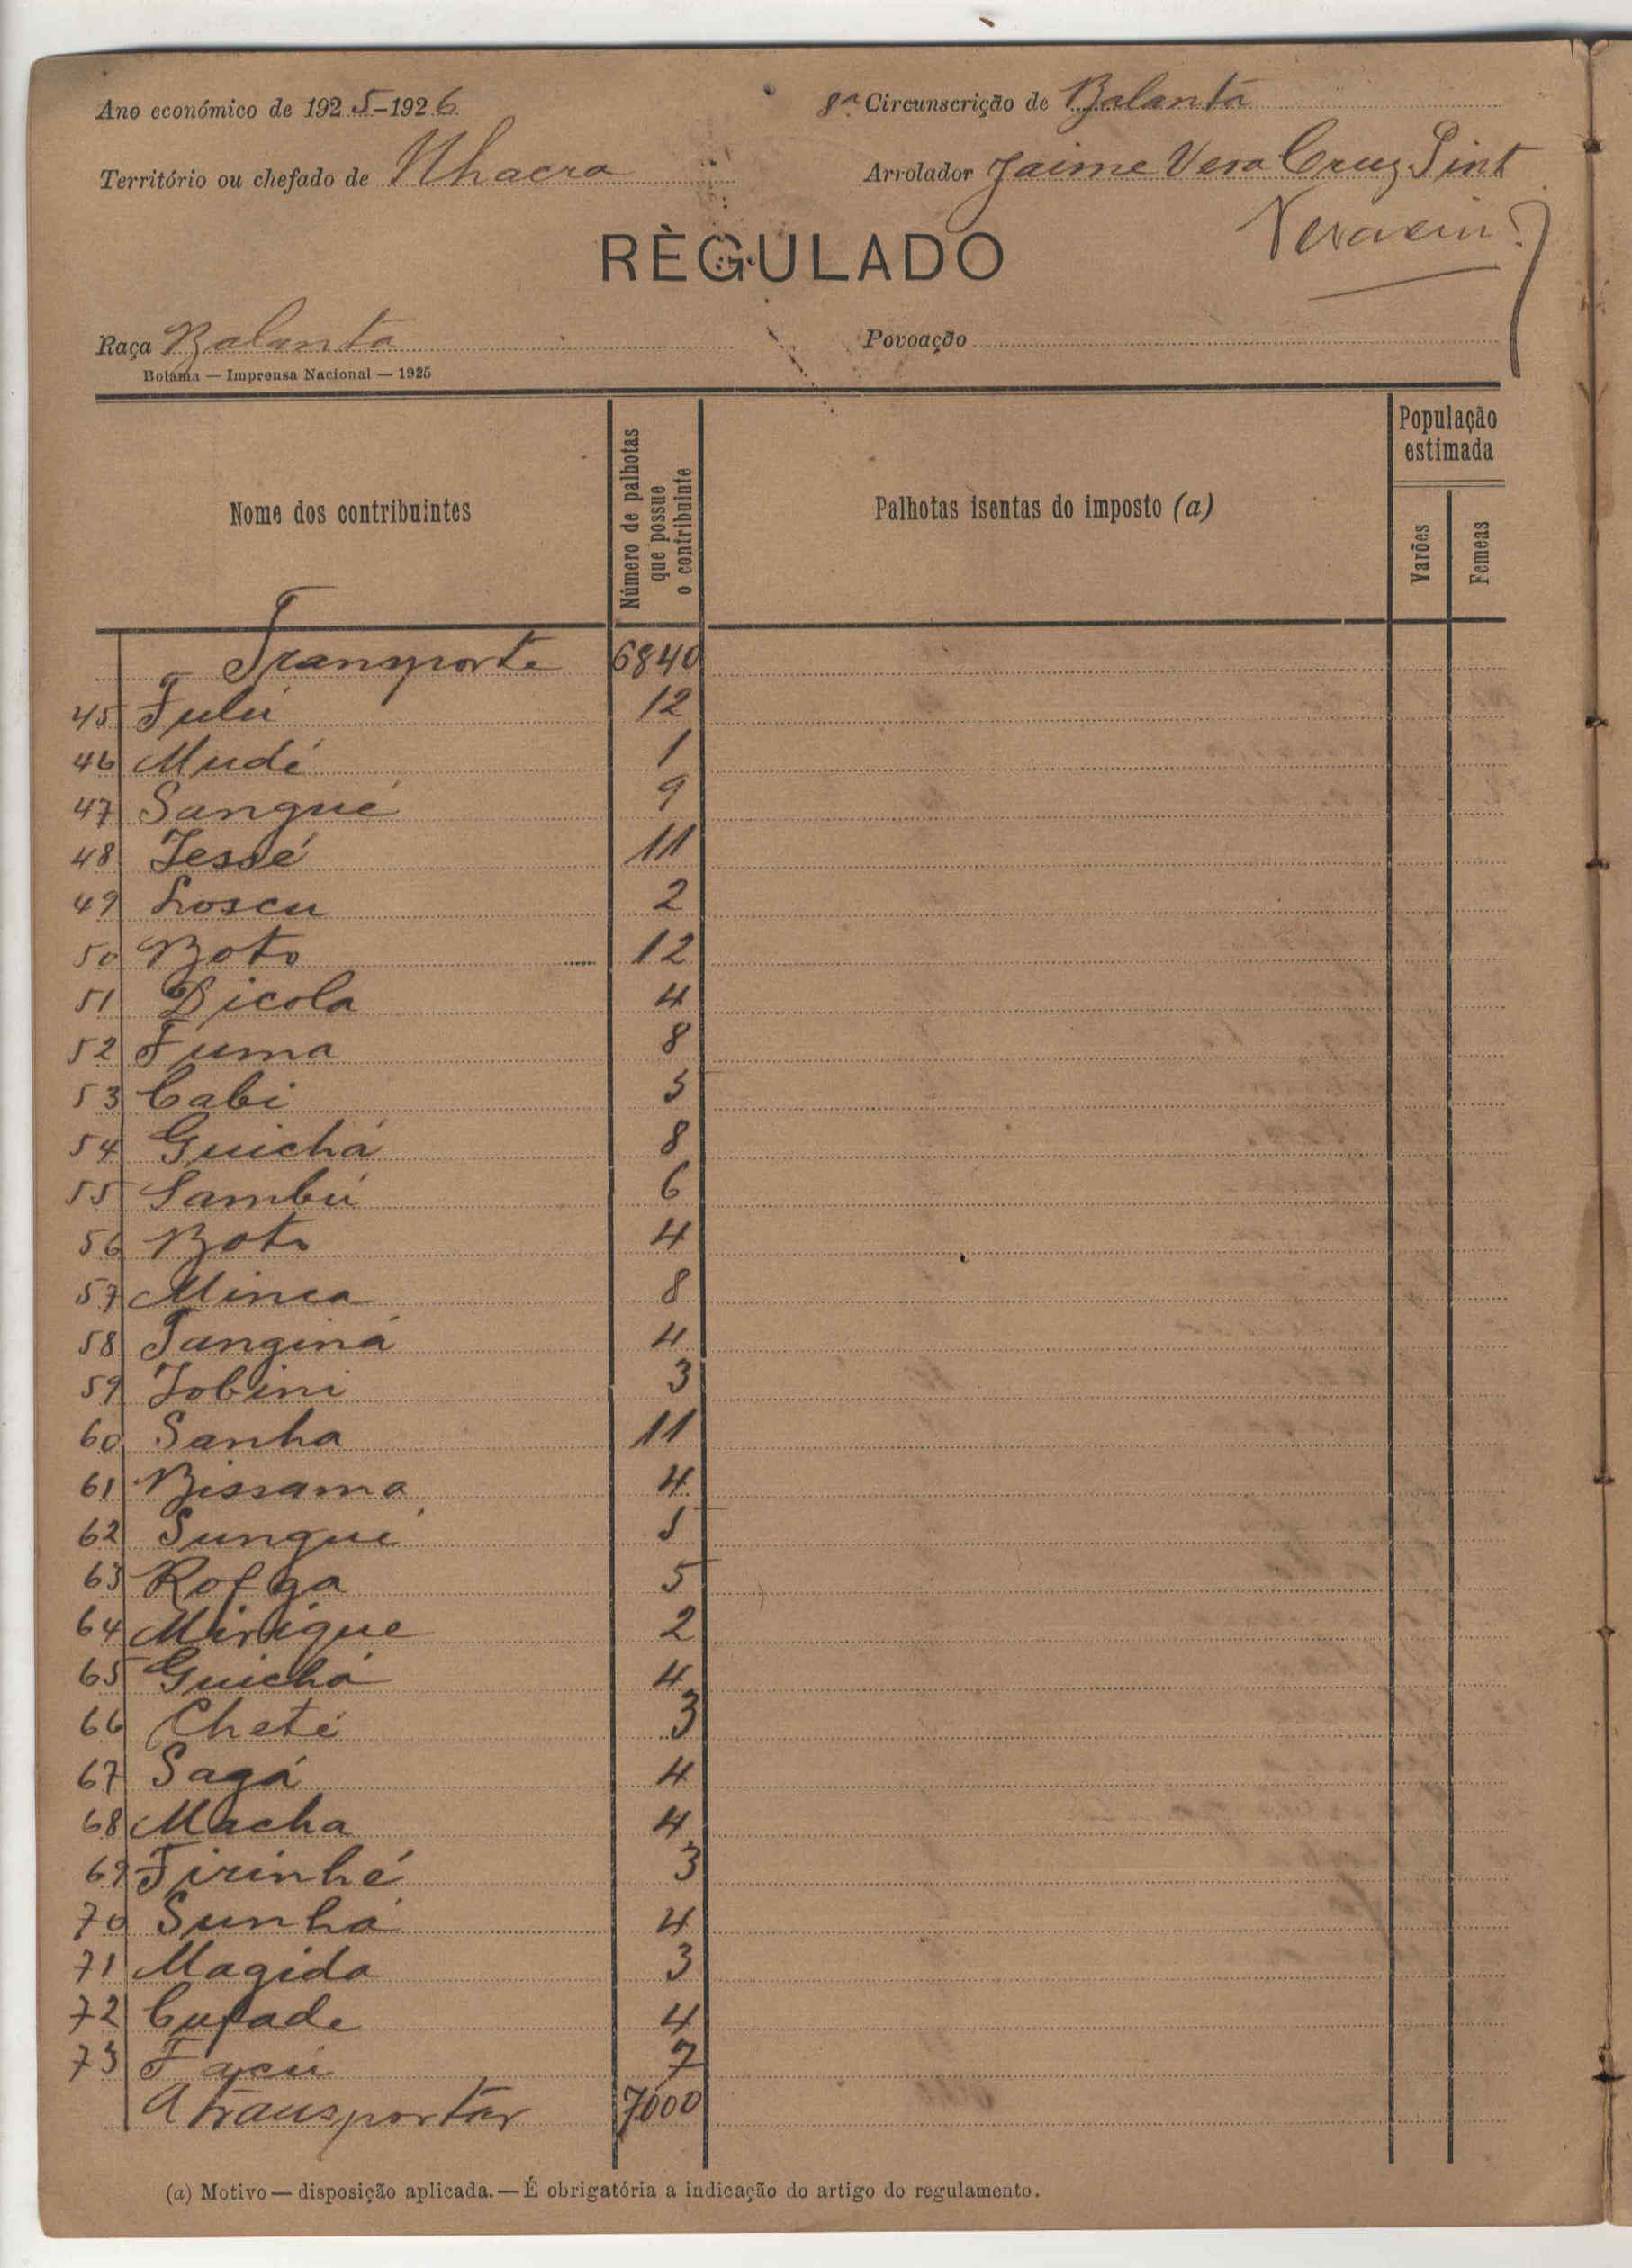 Ano económico de 1925-1926
8ª Circunscrição de Balanta
Território ou chefado de Nhacra
Arrolador Jaime Vera Cruz Pint
RÈGULADO
Raça Balanta
Povoação
Bolama — Imprensa Nacional — 1925
Nome dos contribuintes
Número de palhotas que possue o contribuinte
Palhotas isentas do imposto (a)
População estimada
Varões
Femeas
Transporte 6840
45 Fulú 12
46 Mudé 1
47 Sangué 9
48 Jessé 11
49 Loscu 2
50 Boto 12
51 Bicola 4
52 Fuma 8
53 Cabi 5
54 Guichá 8
55 Sambú 6
56 Boto 4
57 Minca 8
58 Tanginá 4
59 Jobini 3
60 Sanha 11
61 Bissama 4
62 Sungué 5
63 Rofga 5
64 Mirigue 2
65 Guichá 4
66 Cheté 3
67 Sagá 4
68 Macha 4
69 Firinhé 3
70 Sunhá 4
71 Magida 3
72 Cufade 4
73 Façú 7
A transportar 7000
(a) Motivo — disposição aplicada. — É obrigatória a indicação do artigo do regulamento.